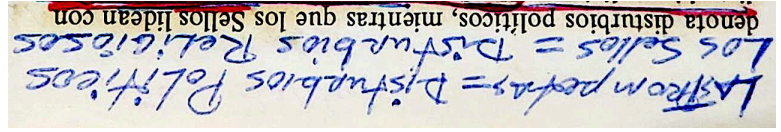 LAS TROMpetas = DistuRbios PoLíticos
Los Sellos = Disturbios ReLigiosos
denota disturbios políticos, mientras que los Sellos lidean con